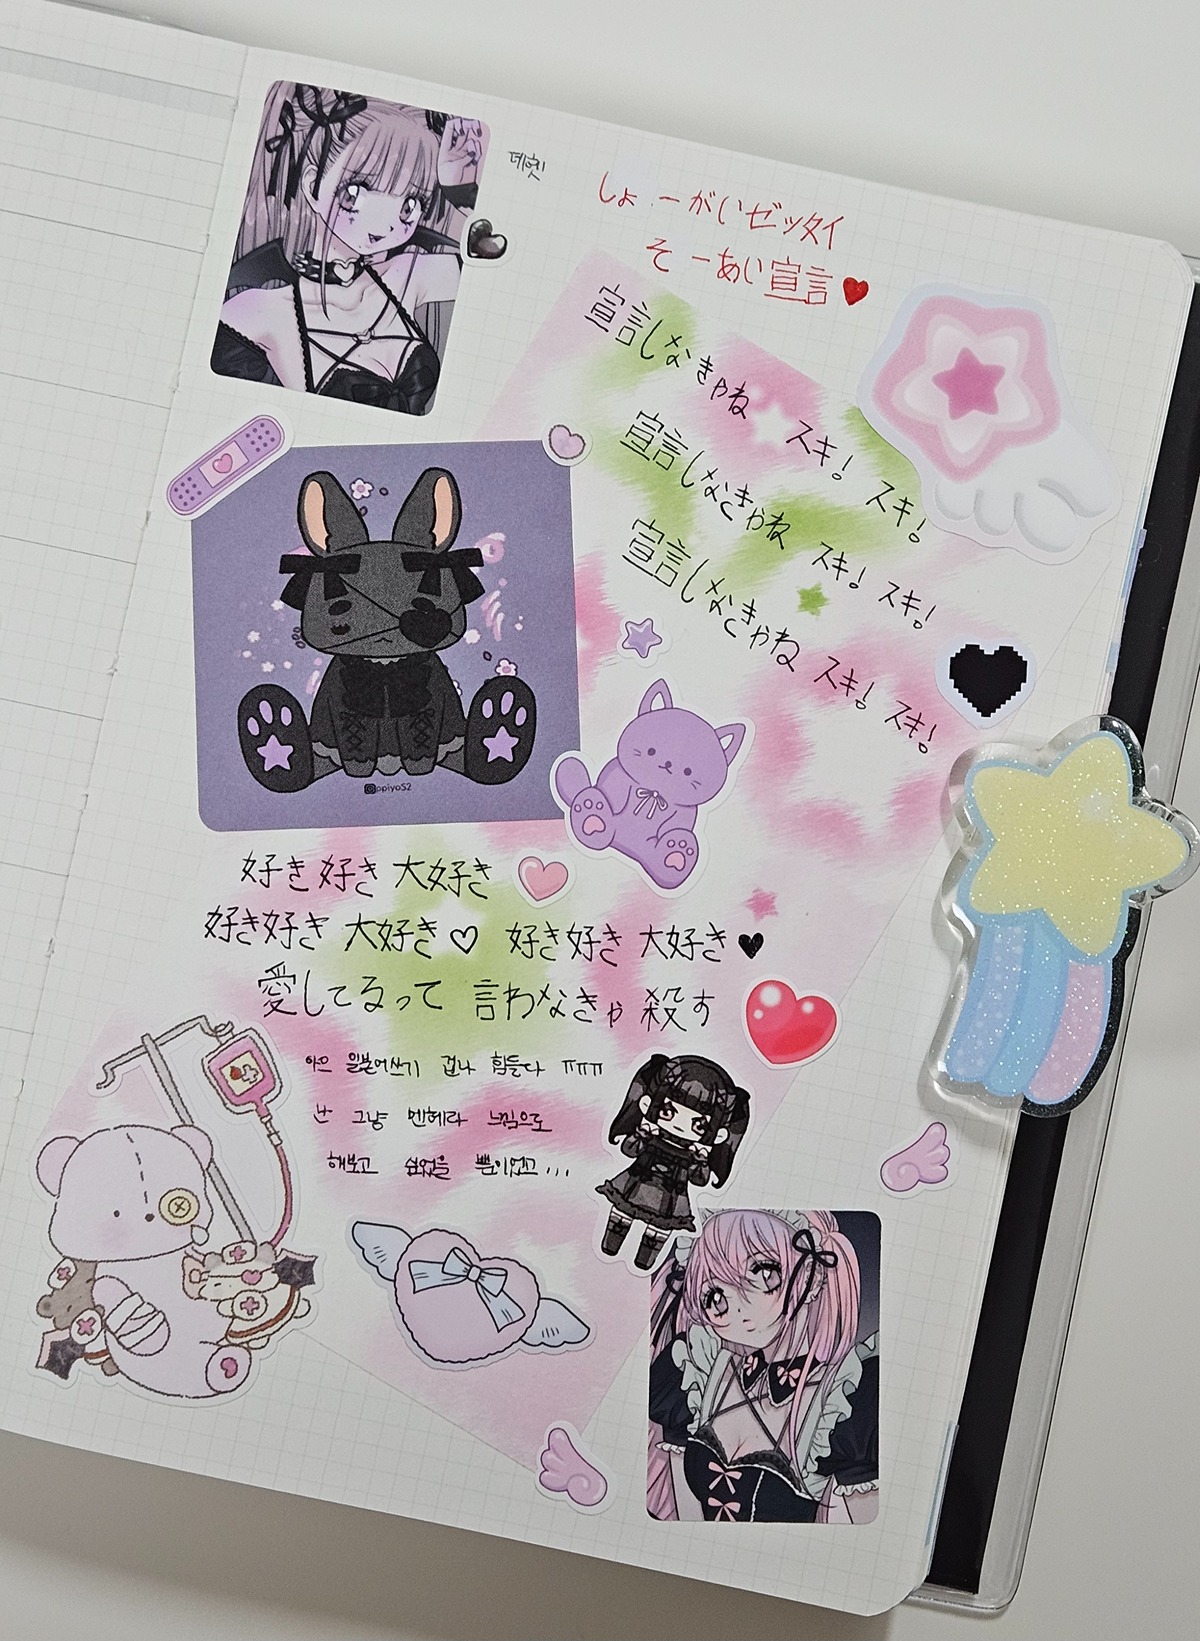 데헷
しょーがいゼッタイ
そーあい宣言♥
宣言しなきゃね スキ! スキ!
宣言しなきゃね スキ! スキ!
宣言しなきゃね スキ! スキ!
@opiyoS2
好き好き 大好き
好き好き 大好き♡ 好き好き 大好き♥
愛してるって 言わなきゃ 殺す
아으 일본어쓰기 겁나 힘들다 ㅠㅠㅠ
난 그냥 멘헤라 느낌으로
해보고 싶었을 뿐이었고...